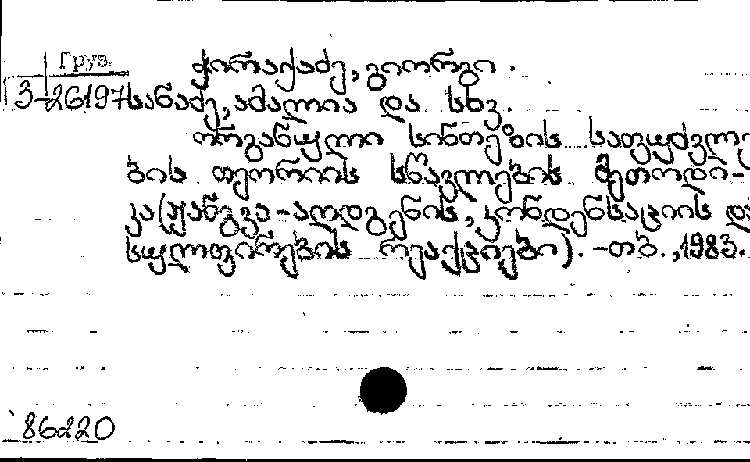 Груз.
ჭირაქაძე, გიორგი.
3-26197 სანაძე, ამალია და სხვ.
ორგანული სინთეზის საფუძვლე
ბის თეორიის სწავლების მეთოდი-
კა (ჟანგვა-აღდგენის, კონდენსაციის და
სულფირების რეაქციები). -თბ., 1983.
86220